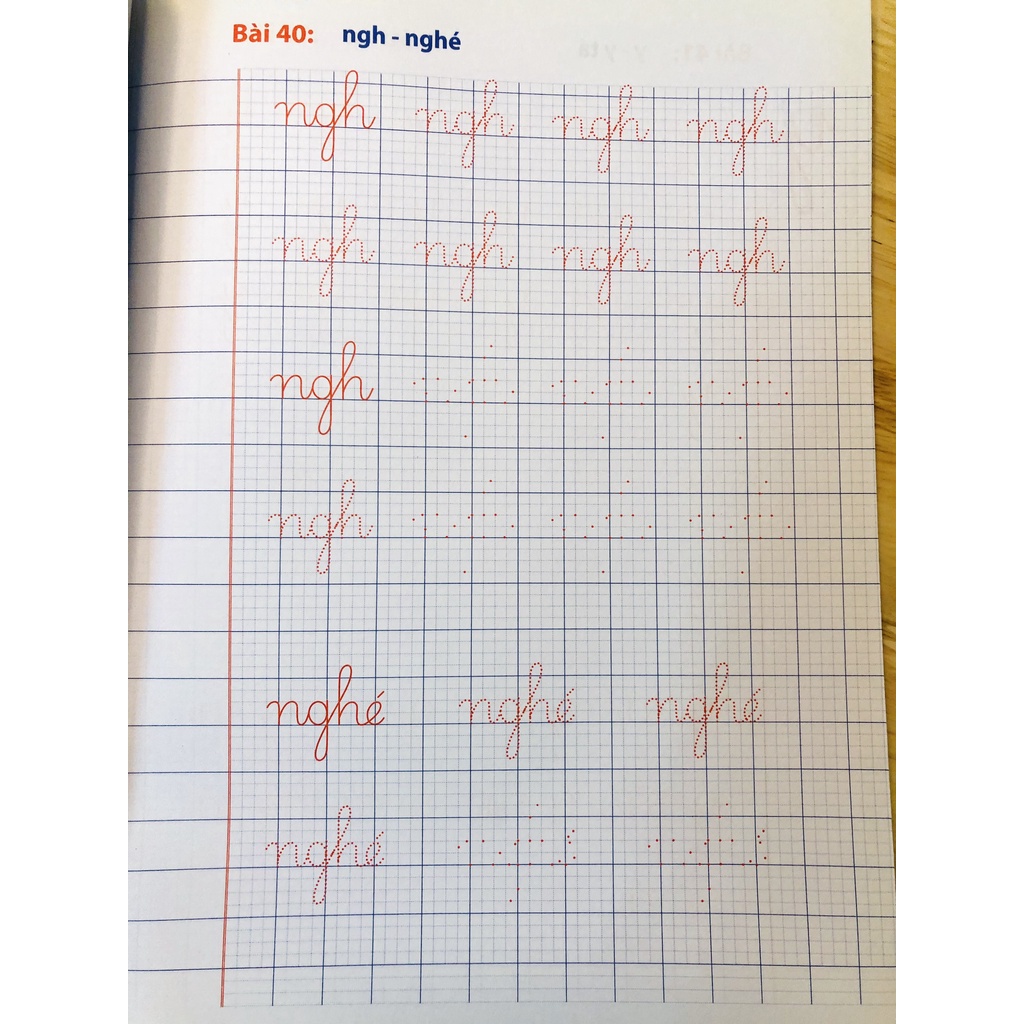 Bài 40: ngh - nghé
ngh ngh ngh ngh
ngh ngh ngh ngh
ngh
ngh
nghé nghé nghé
nghé